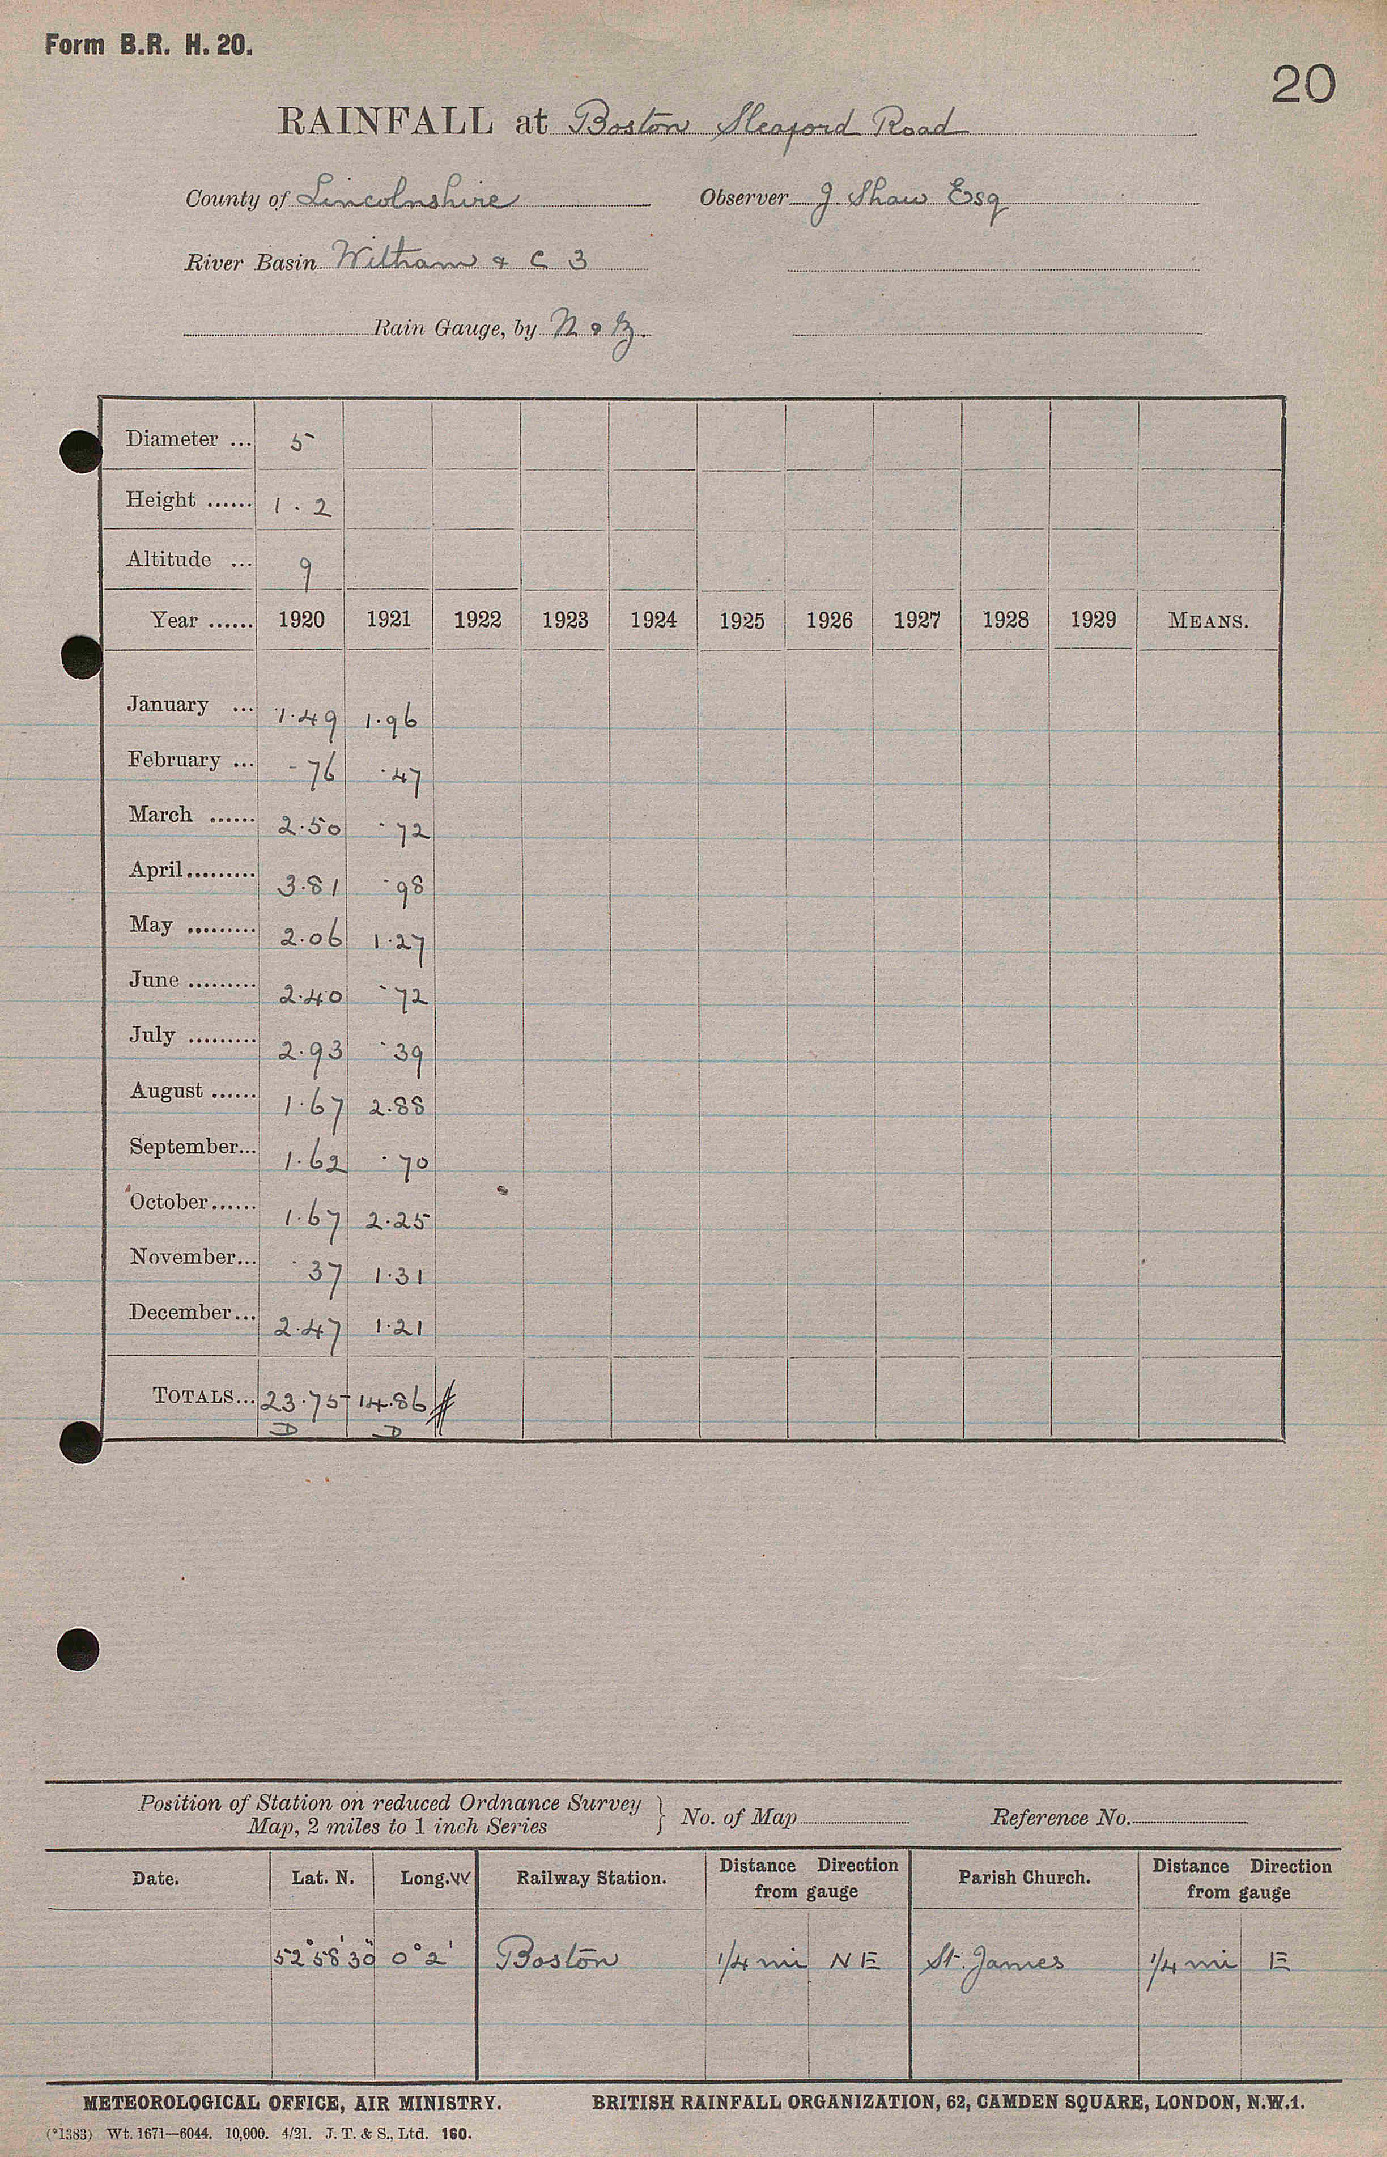 Form B.R. H. 20.
20
RAINFALL at Boston Sleaford Road
County of Lincolnshire Observer J. Shaw Esq
River Basin Witham & C 3
Rain Gauge, by N & Z
Diameter ... 5
Height ...... 1 . 2
Altitude ... 9
Year ...... 1920 1921 1922 1923 1924 1925 1926 1927 1928 1929 MEANS.
January ... 1.49 1.96
February ... .76 .47
March ...... 2.50 .72
April ......... 3.81 .98
May ......... 2.06 1.27
June ......... 2.40 .72
July ......... 2.93 .39
August ...... 1.67 2.88
September... 1.62 .70
October ...... 1.67 2.25
November... .37 1.31
December... 2.47 1.21
TOTALS... 23.75 14.86 #
D D
Position of Station on reduced Ordnance Survey Map, 2 miles to 1 inch Series } No. of Map Reference No.
Date. Lat. N. Long. W Railway Station. Distance Direction from gauge Parish Church. Distance Direction from gauge
52° 58' 30" 0° 2' Boston 1/4 mi NE St. James 1/4 mi E
METEOROLOGICAL OFFICE, AIR MINISTRY. BRITISH RAINFALL ORGANIZATION, 62, CAMDEN SQUARE, LONDON, N.W.1.
(*1383) Wt. 1671—6044. 10,000. 4/21. J. T. & S., Ltd. 160.